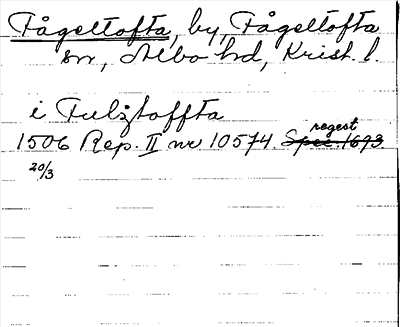 Fågeltofta, by, Fågeltofta
sn, Albo hd, Krist. l.
i Fulztoffta
1506 Rep. II nr 10574. regest Spec. 1693.
20/3